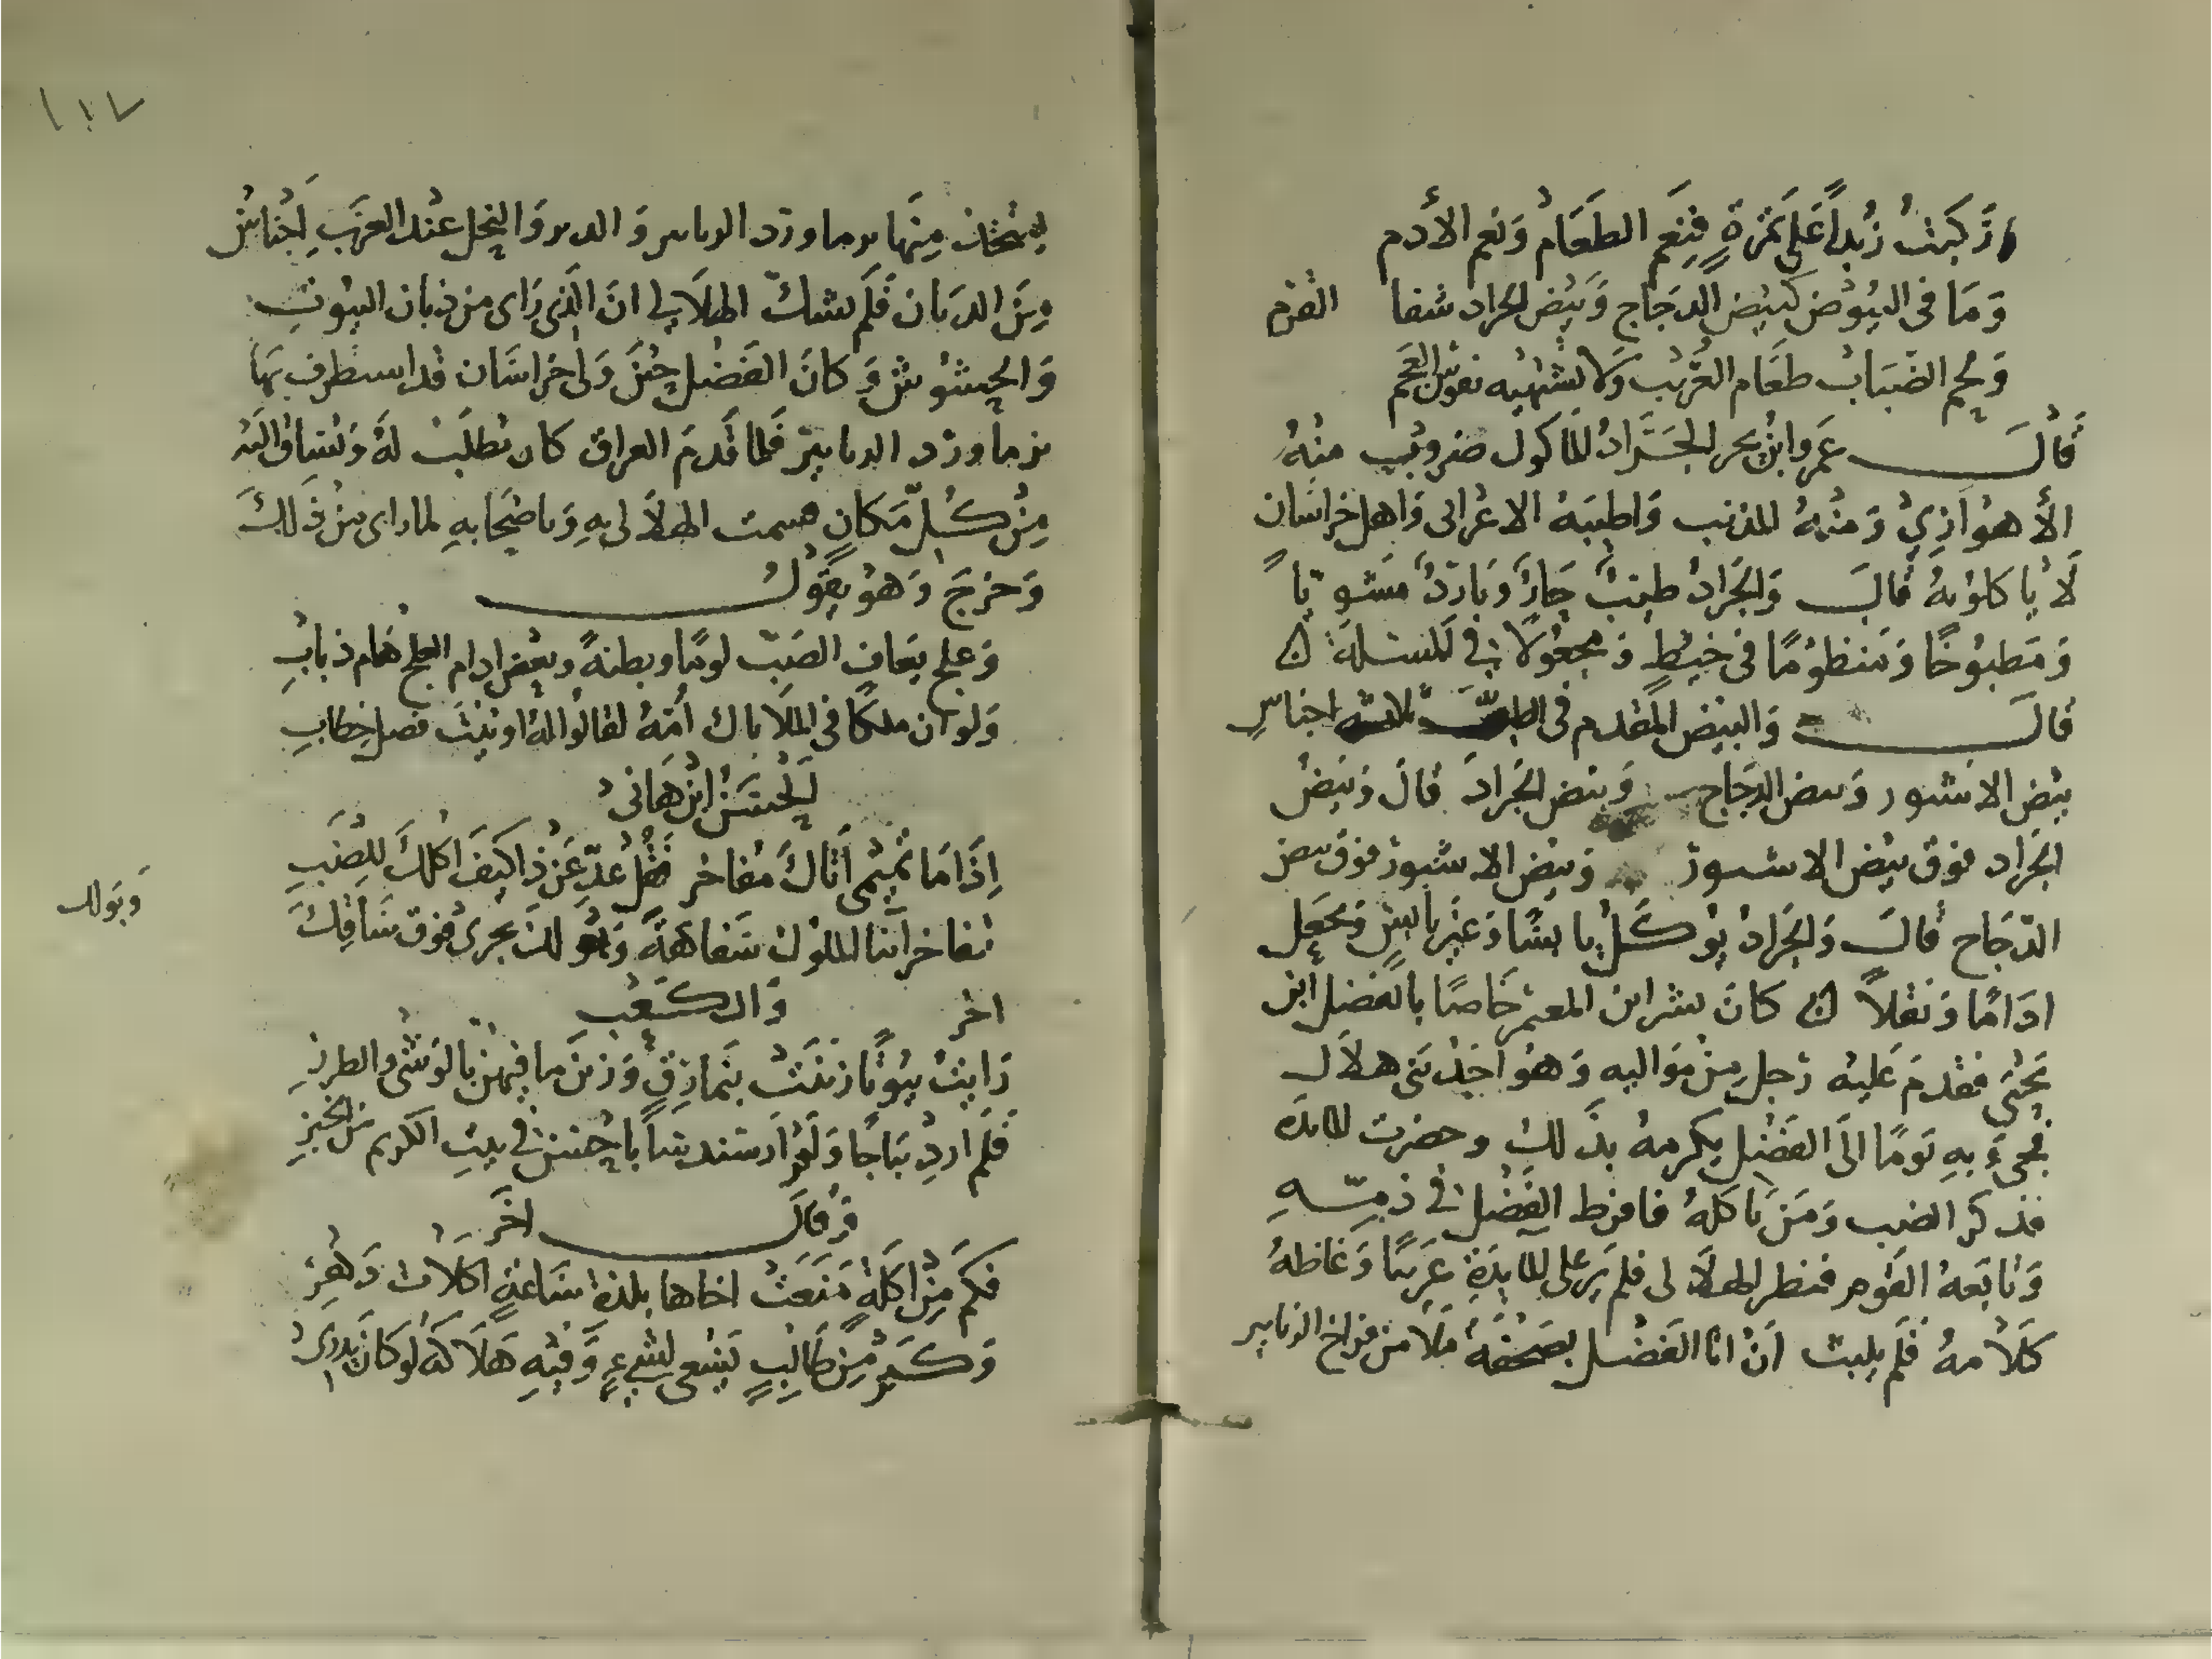 وَرَكبَتْ زُبداً عَلى تَمْرَةٍ فَنِعَم الطَعَامُ وَنعم الأدم
وَمَا فى البُيُوض كَبَيْض الدجَاج وَبَيْض الجراد شفا القرم
وَلحم الضَبَاب طعَام العُرَيْب وَلا تشتهيه نفوس العَجَم
قَالَ عَمروا ابْنُ بحر الجَرَادُ المأكول ضروبٌ منْهُ
الأهوَازِيُّ وَمنْهُ المذنب وَاطيبَهُ الاعْرابى وَاهل خراسَان
لَا يأكلوْنهُ قالَ وَالجَرادُ طيبٌ حَارٌّ وَبَاردٌ مَشويّاً
وَمَطبُوخًا وَمَنظوْمًا فى خيْطٍ وَمجعُولًا في الملة
قالَ وَالبَيْض المقدم فى الطيب ثلاثة اجناسٍ
بيْض الاسبور وَبيض الدجَاج وَبيض الجَراد قالَ وَبَيْضُ
الجَراد فوْق بيْض الاسبور وَبيْض الاسبور فوْق بيض
الدّجَاج قالَ وَالجَرادُ يُوكَلُ يابسًا وَغَيْر يابسٍ وَيجعَل
ادَامًا وَنقلاً كانَ بشر ابن المعتمر خَاصًا بالفضل ابن
يَحْيَى فقدمَ عَليه رَجل مِنْ مَوَاليه وَهُوَ احَدُ بَنى هلاَل
فجىءَ بهِ يَومًا الَى الفَضْل يكرمهُ بذَلك وحضرت المائدَه
فذكر الضب وَمَن يَأكلهُ فافرط الفَضْل في ذمّهِ
وَتابَعهُ القَوم فنظر الهلاَلى فلم يَر عَلى المايدَة عَربيًا وَغاظهُ
كَلاَمهُ فَلَم يلبث اَنْ اتا الفَضْل بصَحْفَةٍ مَلا من فراخ الزنابير
ليتخذ مِنهَا بزماورد الزنابير وَالدبر وَالنحل عنْد العَرَب اَجْناسٌ
مِنَ الذبَان فَلَم يشكّ الهلاَلي انَ الَّذي رَاى من ذبان البيُوت
وَالحشُوش وَكانَ الفَضْل حيْنَ وَلى خرَاسَان قد استطرف بهَا
بزماورد الزنابير فَلما قَدمَ العراق كان يطلَبْ لهُ وَيُسَاق اليْه
مِنْ كُلّ مَكَانٍ فشمت الهلاَلى بهِ وَباصْحَابهِ لما راى منْ ذَلكَ
وَخَرَجَ وَهُو يقوْلُ
وَعلج يعَاف الضَبّ لومًا وبطنةً وبعض ادام العلج هَام ذبابِ
وَلو ان ملكًا فى الملَا ناك اُمَّهُ لقالُوا لهُ اوتيْتَ فصل خطابِ
الحسَنْ ابن هَانى
اِذَا مَا تميْمى اَتاكَ مُفاخر فَقُلْ عَدِّ عَنْ ذا كَيْفَ اكلكَ للِضَبِ
تفاخر ابْنا الملوك سَفاهَةً وَبَوْلكَ يجرى فوْق سَاقِكَ
وَبَولك
اخر وَالكعْبِ
رَايتُ بيُوْتًا زينَتْ بنَمارِقٍ وَزينَ مَا فيْهنّ بالوَشى والطرزِ
فَلَم ارَ ديْبَاجًا وَلَمْ اَرَ سندسًا باحسَن في بيتِ الكريم مَن الخبزِ
وَقالَ اخَر
فكَم مِنْ اكلةٍ مَنَعَتْ اخاها بلذةِ سَاعةٍ اكلاَت دَهْرِ
وَكَمْ مِنْ طَالبٍ يَسْعى لشيءٍ وَفيْهِ هَلاَكَهُ لَو كَانَ يَدْرى